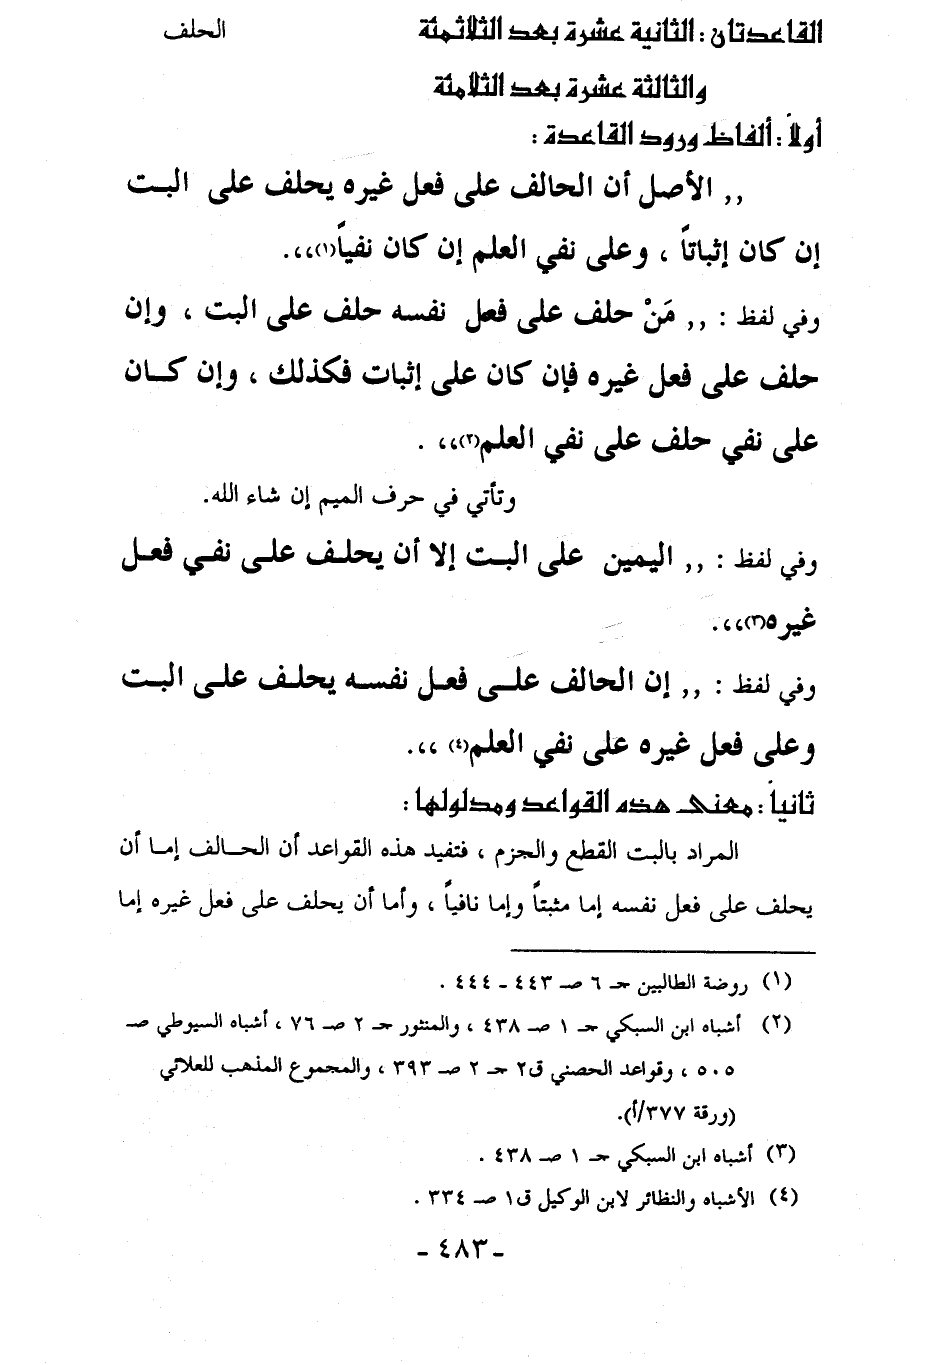 القاعدتان : الثانية عشرة بعد الثلاثمئة الحلف
والثالثة عشرة بعد الثلامئة
أولاً : ألفاظ ورود القاعدة :
,, الأصل أن الحالف على فعل غيره يحلف على البت
إن كان إثباتاً ، وعلى نفي العلم إن كان نفياً(١)،،.
وفي لفظ : ,, مَنْ حلف على فعل نفسه حلف على البت ، وإن
حلف على فعل غيره فإن كان على إثبات فكذلك ، وإن كـان
على نفي حلف على نفي العلم(٢)،، .
وتأتي في حرف الميم إن شاء الله.
وفي لفظ : ,, اليمين على البـت إلا أن يحلـف علـى نفـي فعـل
غيره(٣)،،.
وفي لفظ : ,, إن الحالف علـى فعـل نفسـه يحلـف علـى البـت
وعلى فعل غيره على نفي العلم(٤) ،،.
ثانياً : معنى هذه القواعد ومدلولها :
المراد بالبت القطع والجزم ، فتفيد هذه القواعد أن الحـالف إمـا أن
يحلف على فعل نفسه إما مثبتاً وإما نافياً ، وأما أن يحلف على فعل غيره إما
(١) روضة الطالبين حـ ٦ صـ ٤٤٣ - ٤٤٤ .
(٢) أشباه ابن السبكي حـ ١ صـ ٤٣٨ ، والمنثور حـ ٢ صـ ٧٦ ، أشباه السيوطي صـ
٥٠٥ ، وقواعد الحصني ق٢ حـ ٢ صـ ٣٩٣ ، والمجموع المذهب للعلائي
(ورقة ٣٧٧/أ).
(٣) أشباه ابن السبكي حـ ١ صـ ٤٣٨ .
(٤) الأشباه والنظائر لابن الوكيل ق١ صـ ٣٣٤ .
- ٤٨٣ -